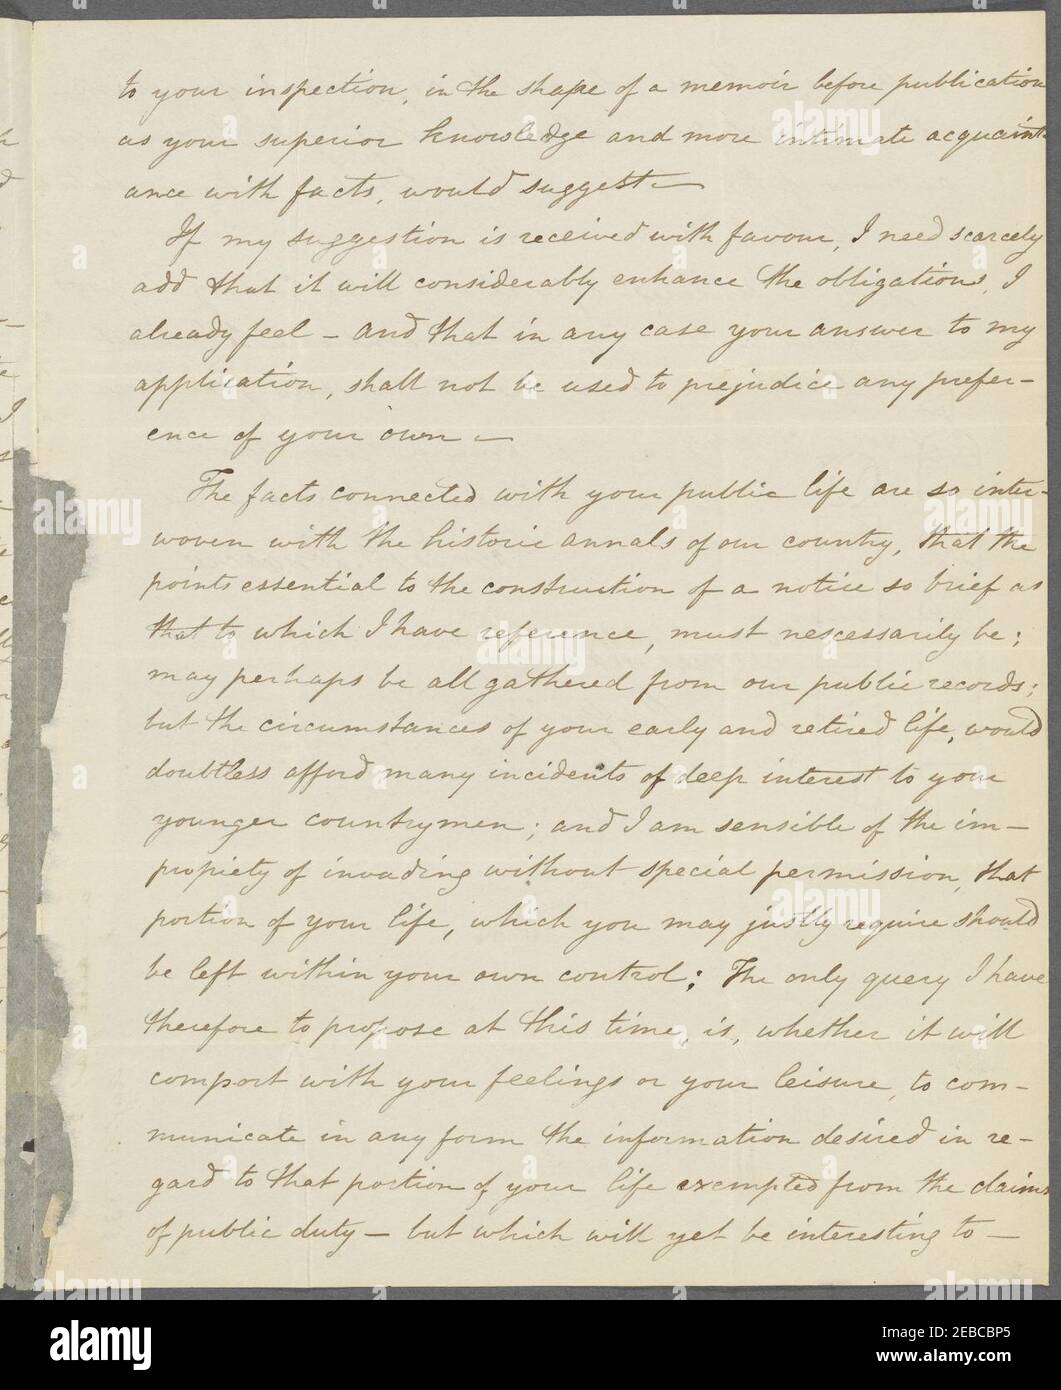 to your inspection, in the shape of a memoir before publication
as your superior knowledge and more intimate acquaint-
ance with facts, would suggest—
If my suggestion is received with favour, I need scarcely
add that it will considerably enhance the obligations, I
already feel – and that in any case your answer to my
application, shall not be used to prejudice any prefer-
ence of your own —
The facts connected with your public life are so inter-
woven with the historic annals of our country, that the
points essential to the construction of a notice so brief as
that to which I have reference, must nescessarily be;
may perhaps be all gathered from our public records;
but the circumstances of your early and retired life, would
doubtless afford many incidents of deep interest to your
younger countrymen; and I am sensible of the im-
propiety of invading without special permission, that
portion of your life, which you may justly require should
be left within your own control; The only query I have
therefore to propose at this time, is, whether it will
comport with your feelings or your leisure, to com-
municate in any form the information desired in re-
gard to that portion of your life exempted from the claims
of public duty – but which will yet be interesting to —
alamy
Image ID: 2EBCBP5
www.alamy.com